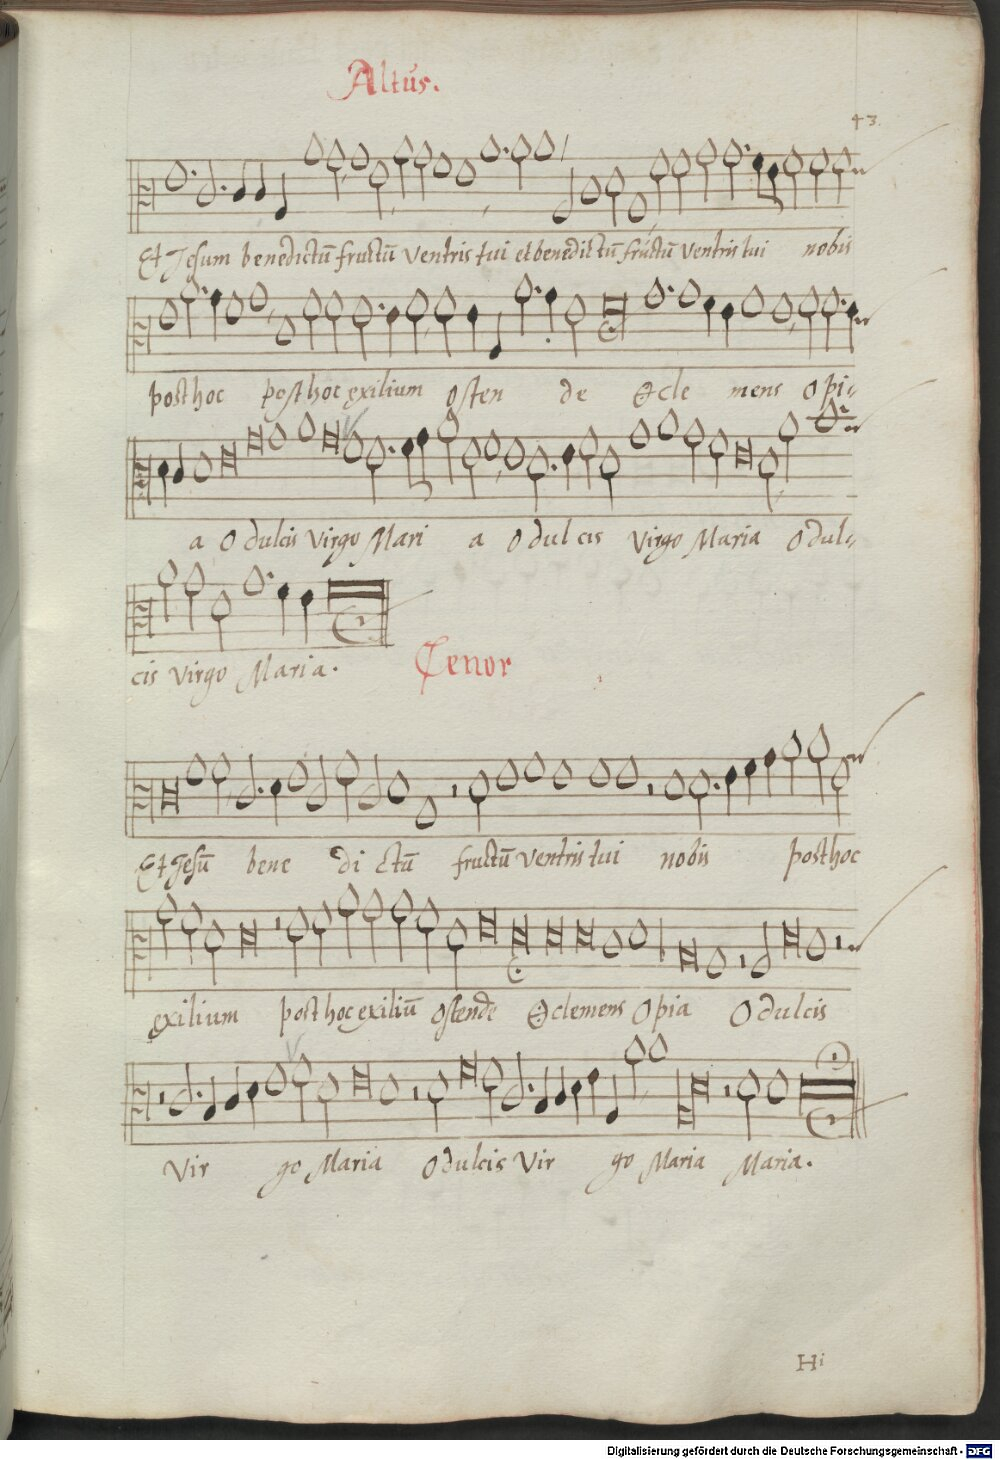 Altus.
43.
Et Jesum benedictū fructū ventris tui et benedictū fructū ventris tui nobis
post hoc post hoc exilium osten de O cle mens O pi=
a O dulcis virgo Mari a O dul cis virgo Maria O dul=
cis virgo Maria.
Tenor
Et Jesū bene di ctū fructū ventris tui nobis post hoc
exilium post hoc exiliū ostende O clemens O pia O dulcis
Vir go Maria O dulcis Vir go Maria Maria.
Hi
Digitalisierung gefördert durch die Deutsche Forschungsgemeinschaft - DFG